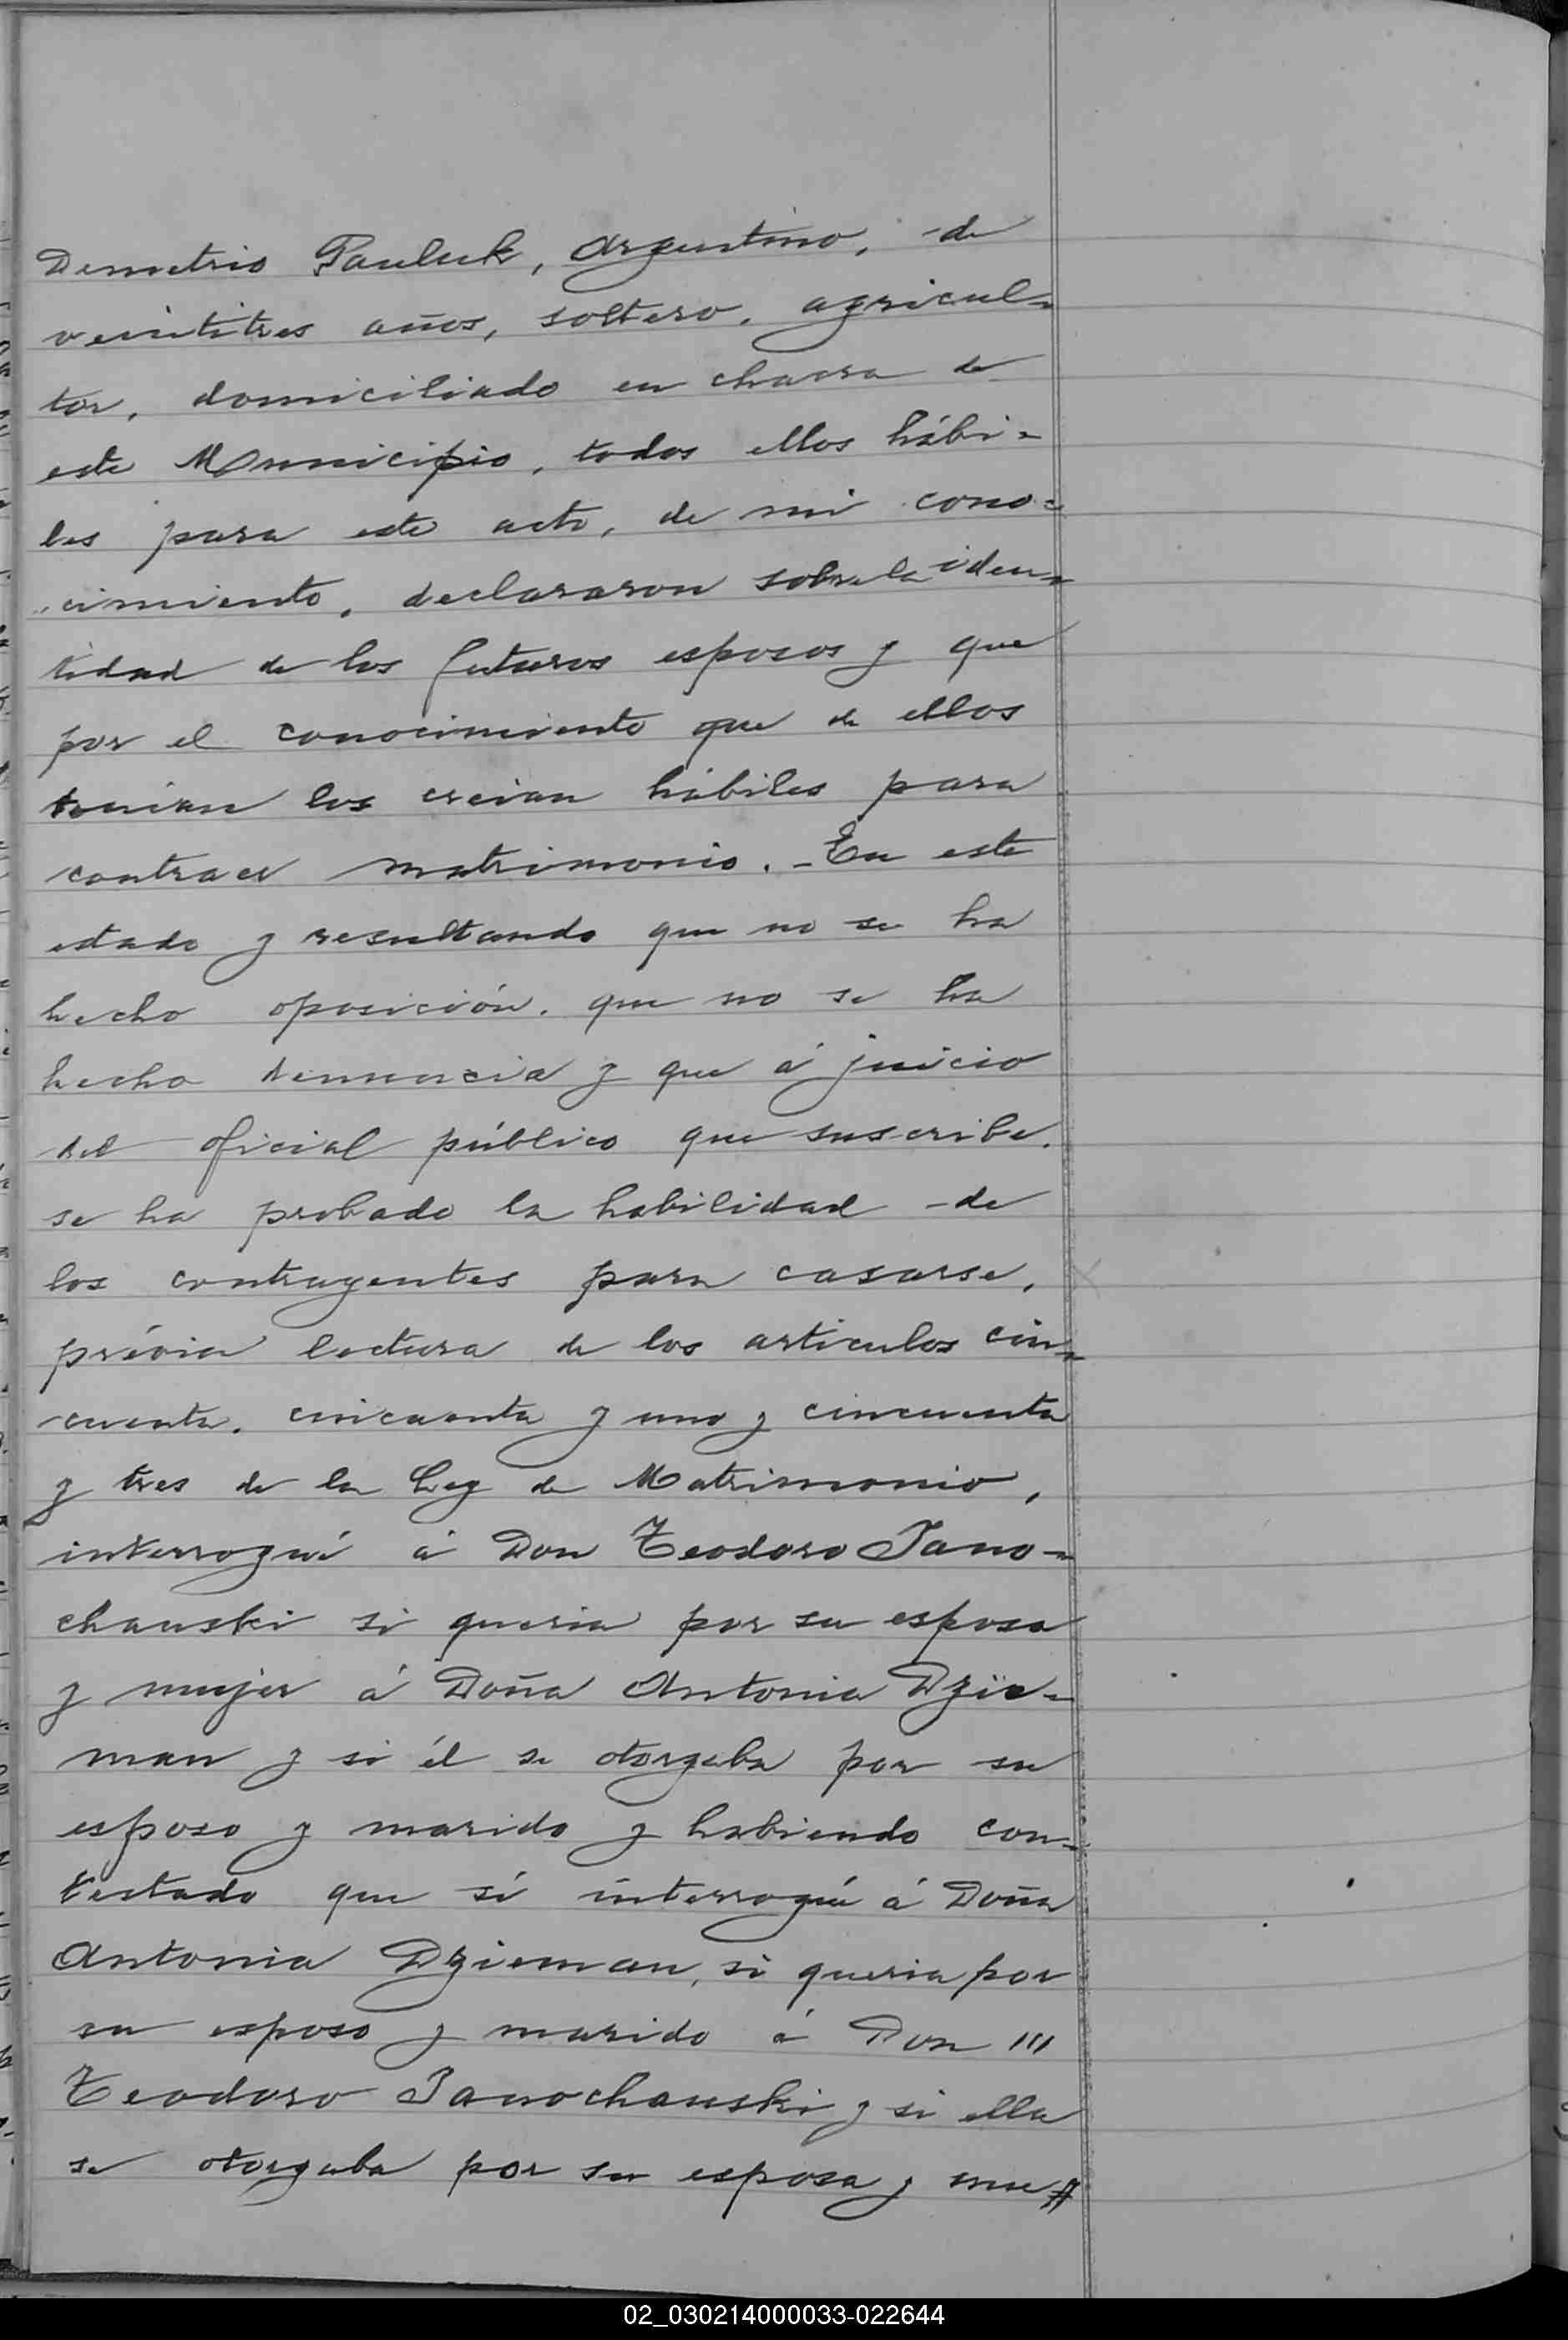 Demetrio Pauluk, Argentino, de
veintitres años, soltero, agricul=
tor, domiciliado en chacra de
este Municipio, todos ellos hábi=
les para este acto, de mi cono=
cimiento, declararon sobre la iden=
tidad de los futuros esposos y que
por el conocimiento que de ellos
tenian los creian hábiles para
contraer matrimonio. - En este
estado y resultando que no se ha
hecho oposición, que no se ha
hecho denuncia y que á juicio
del oficial público que suscribe,
se ha probado la habilidad de
los contrayentes para casarse,
prévia lectura de los articulos cin=
cuenta, cincuenta y uno y cincuenta
y tres de la Ley de Matrimonio,
interrogué á Don Teodoro Jano=
chauski si queria por su esposa
y mujer á Doña Antonia Dzie=
man y si él se otorgaba por su
esposo y marido y habiendo con=
testado que sí interrogué á Doña
Antonia Dzieman, si queria por
su esposo y marido á Don ///
Teodoro Janochauski y si ella
se otorgaba por su esposa y mu#
02_030214000033-022644